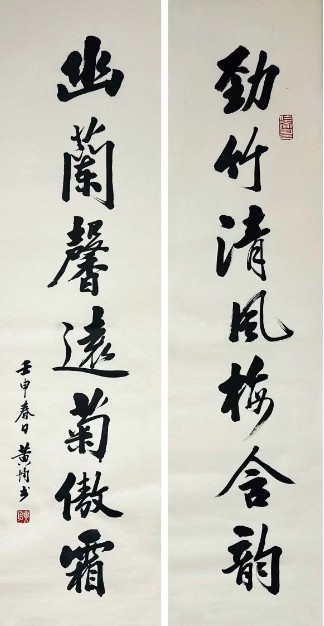 勁竹清风梅含韵
幽蘭馨遠菊傲霜
壬申春日黄均书